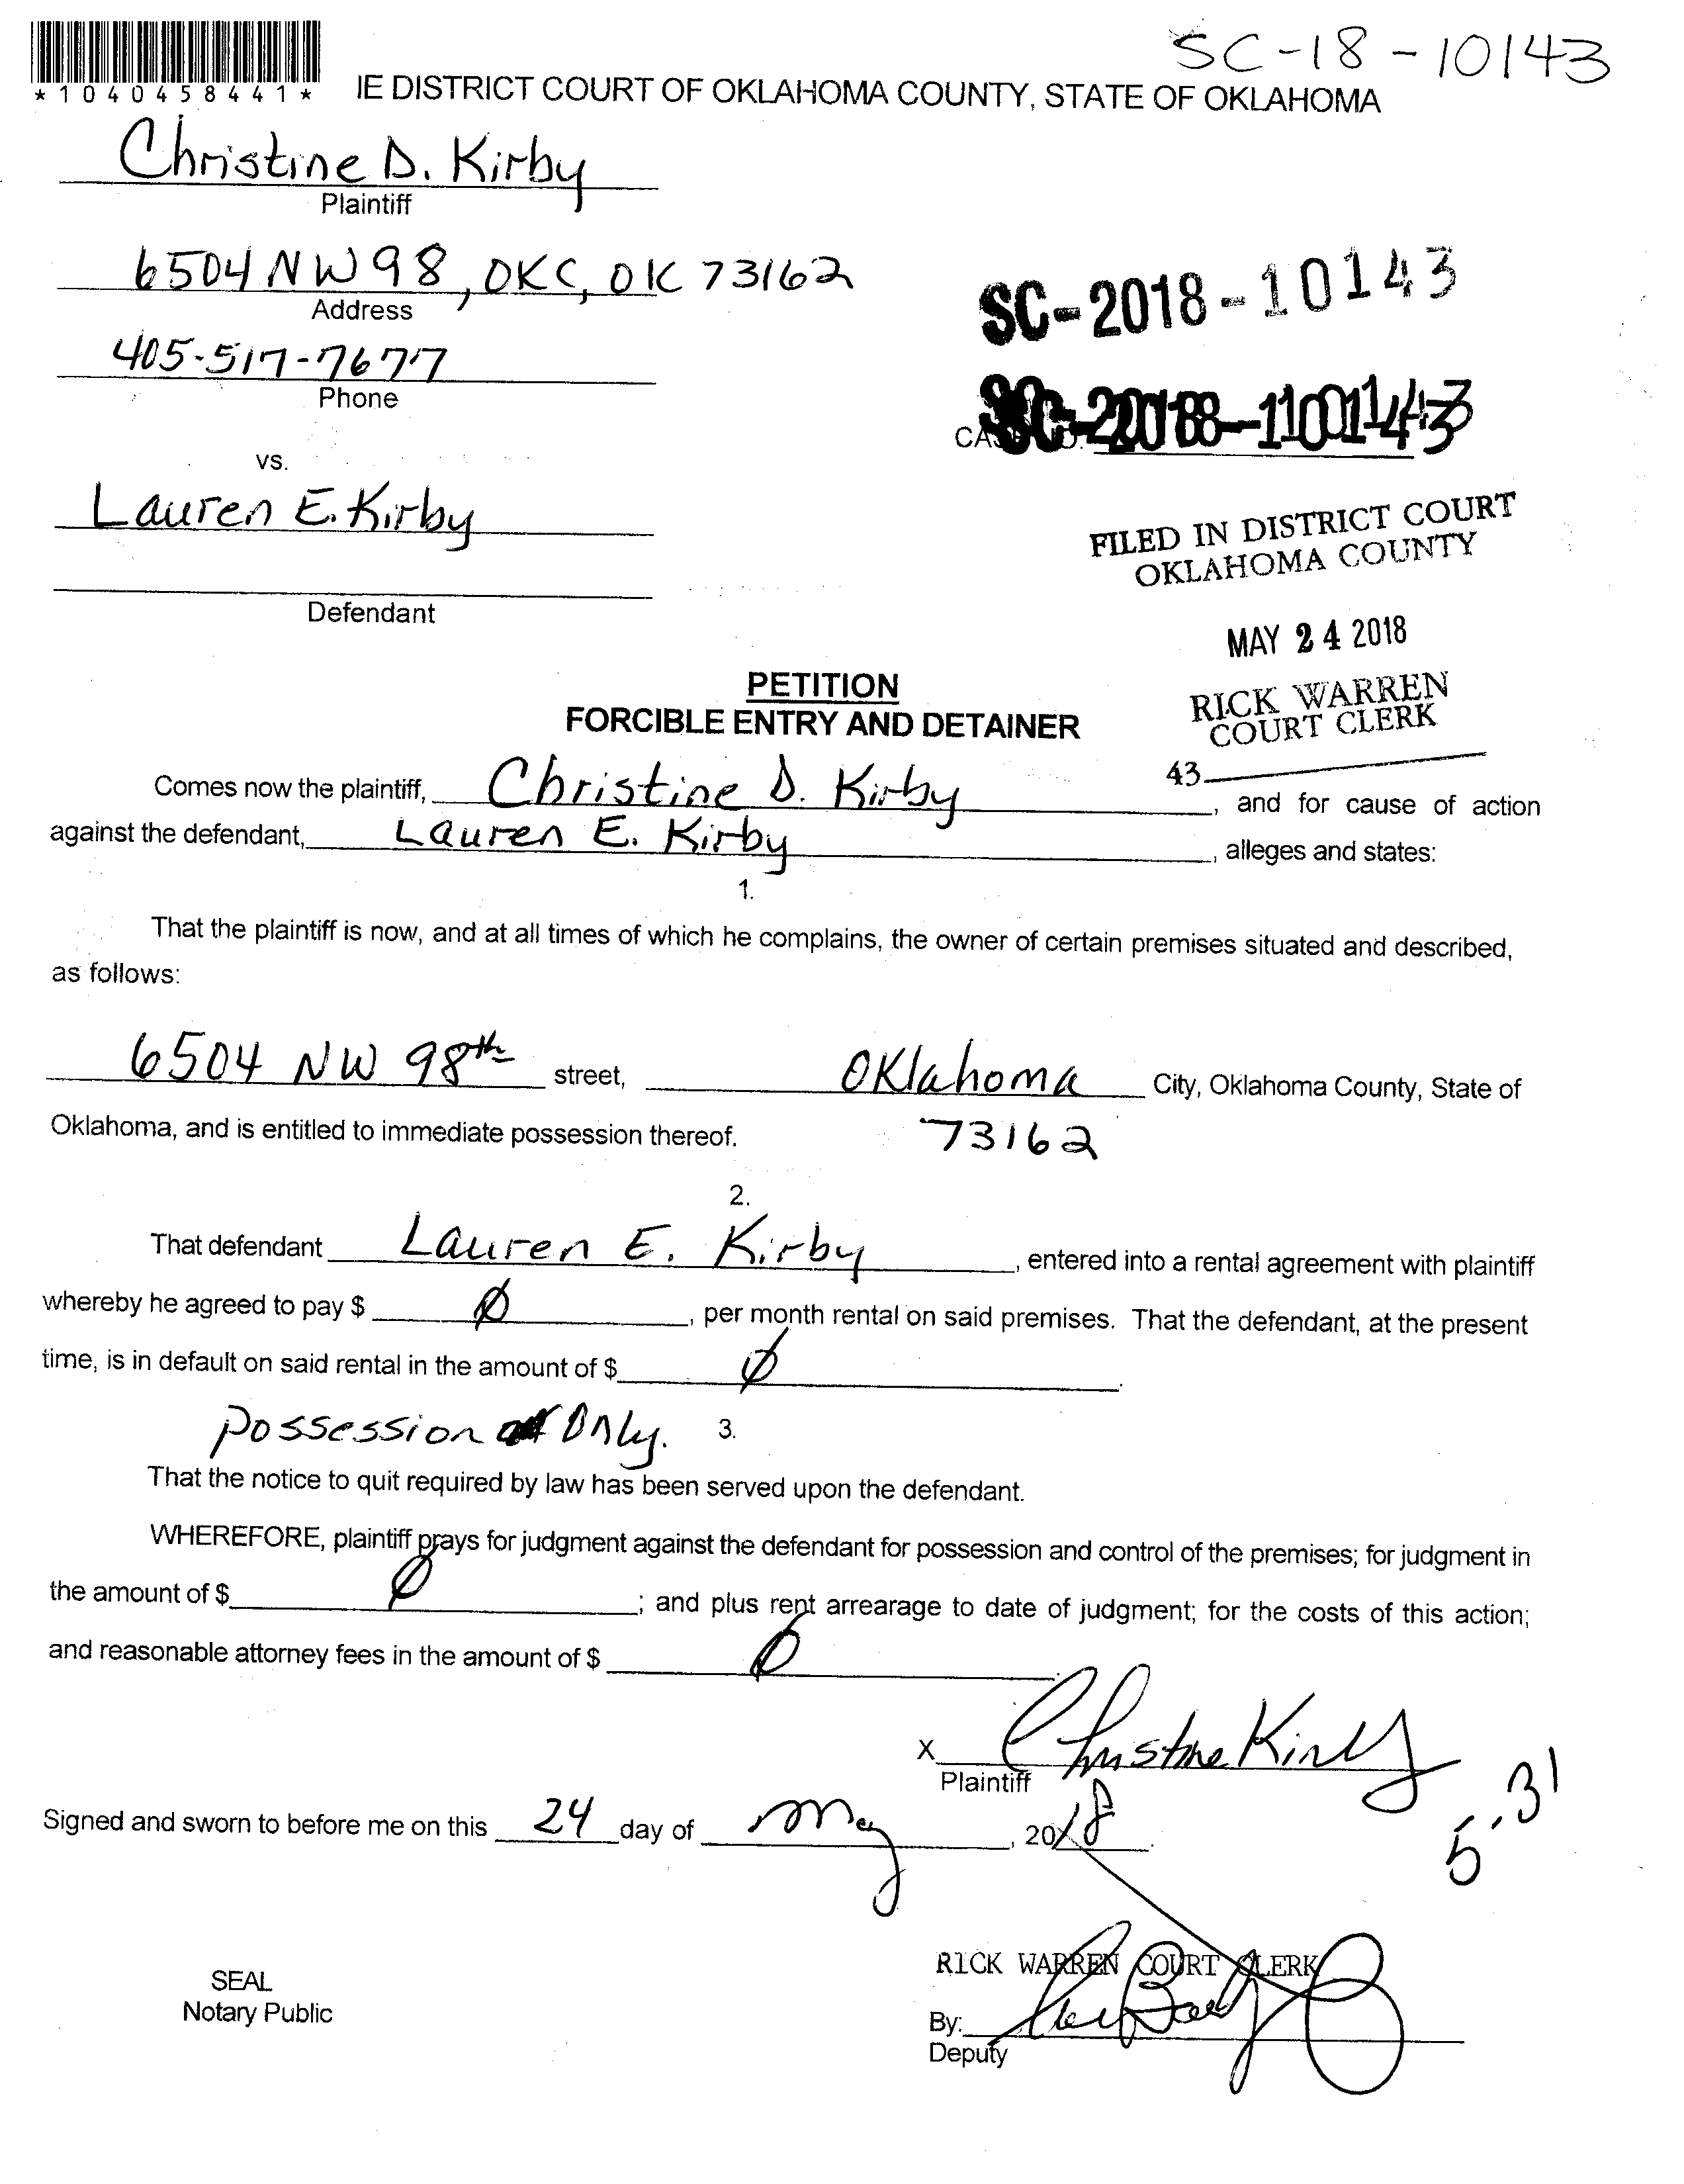 SC-18-10143
*1040458441*
IE DISTRICT COURT OF OKLAHOMA COUNTY, STATE OF OKLAHOMA
Christine D. Kirby
Plaintiff
6504 NW 98, OKC, OK 73162
Address
SC-2018-10143
405-517-7677
Phone
SC-2018-10143
vs.
Lauren E. Kirby
FILED IN DISTRICT COURT
OKLAHOMA COUNTY
Defendant
MAY 24 2018
PETITION
RICK WARREN
COURT CLERK
FORCIBLE ENTRY AND DETAINER
43
Comes now the plaintiff, Christine D. Kirby, and for cause of action
against the defendant, Lauren E. Kirby, alleges and states:
1.
That the plaintiff is now, and at all times of which he complains, the owner of certain premises situated and described,
as follows:
6504 NW 98th street, Oklahoma City, Oklahoma County, State of
Oklahoma, and is entitled to immediate possession thereof. 73162
2.
That defendant Lauren E. Kirby, entered into a rental agreement with plaintiff
whereby he agreed to pay $ Ø, per month rental on said premises. That the defendant, at the present
time, is in default on said rental in the amount of $ Ø.
Possession Only. 3.
That the notice to quit required by law has been served upon the defendant.
WHEREFORE, plaintiff prays for judgment against the defendant for possession and control of the premises; for judgment in
the amount of $ Ø; and plus rent arrearage to date of judgment; for the costs of this action;
and reasonable attorney fees in the amount of $ Ø
X Christine Kirby
Plaintiff
5-31
Signed and sworn to before me on this 24 day of May, 2018.
RICK WARREN COURT CLERK
SEAL
Notary Public
By:
Deputy